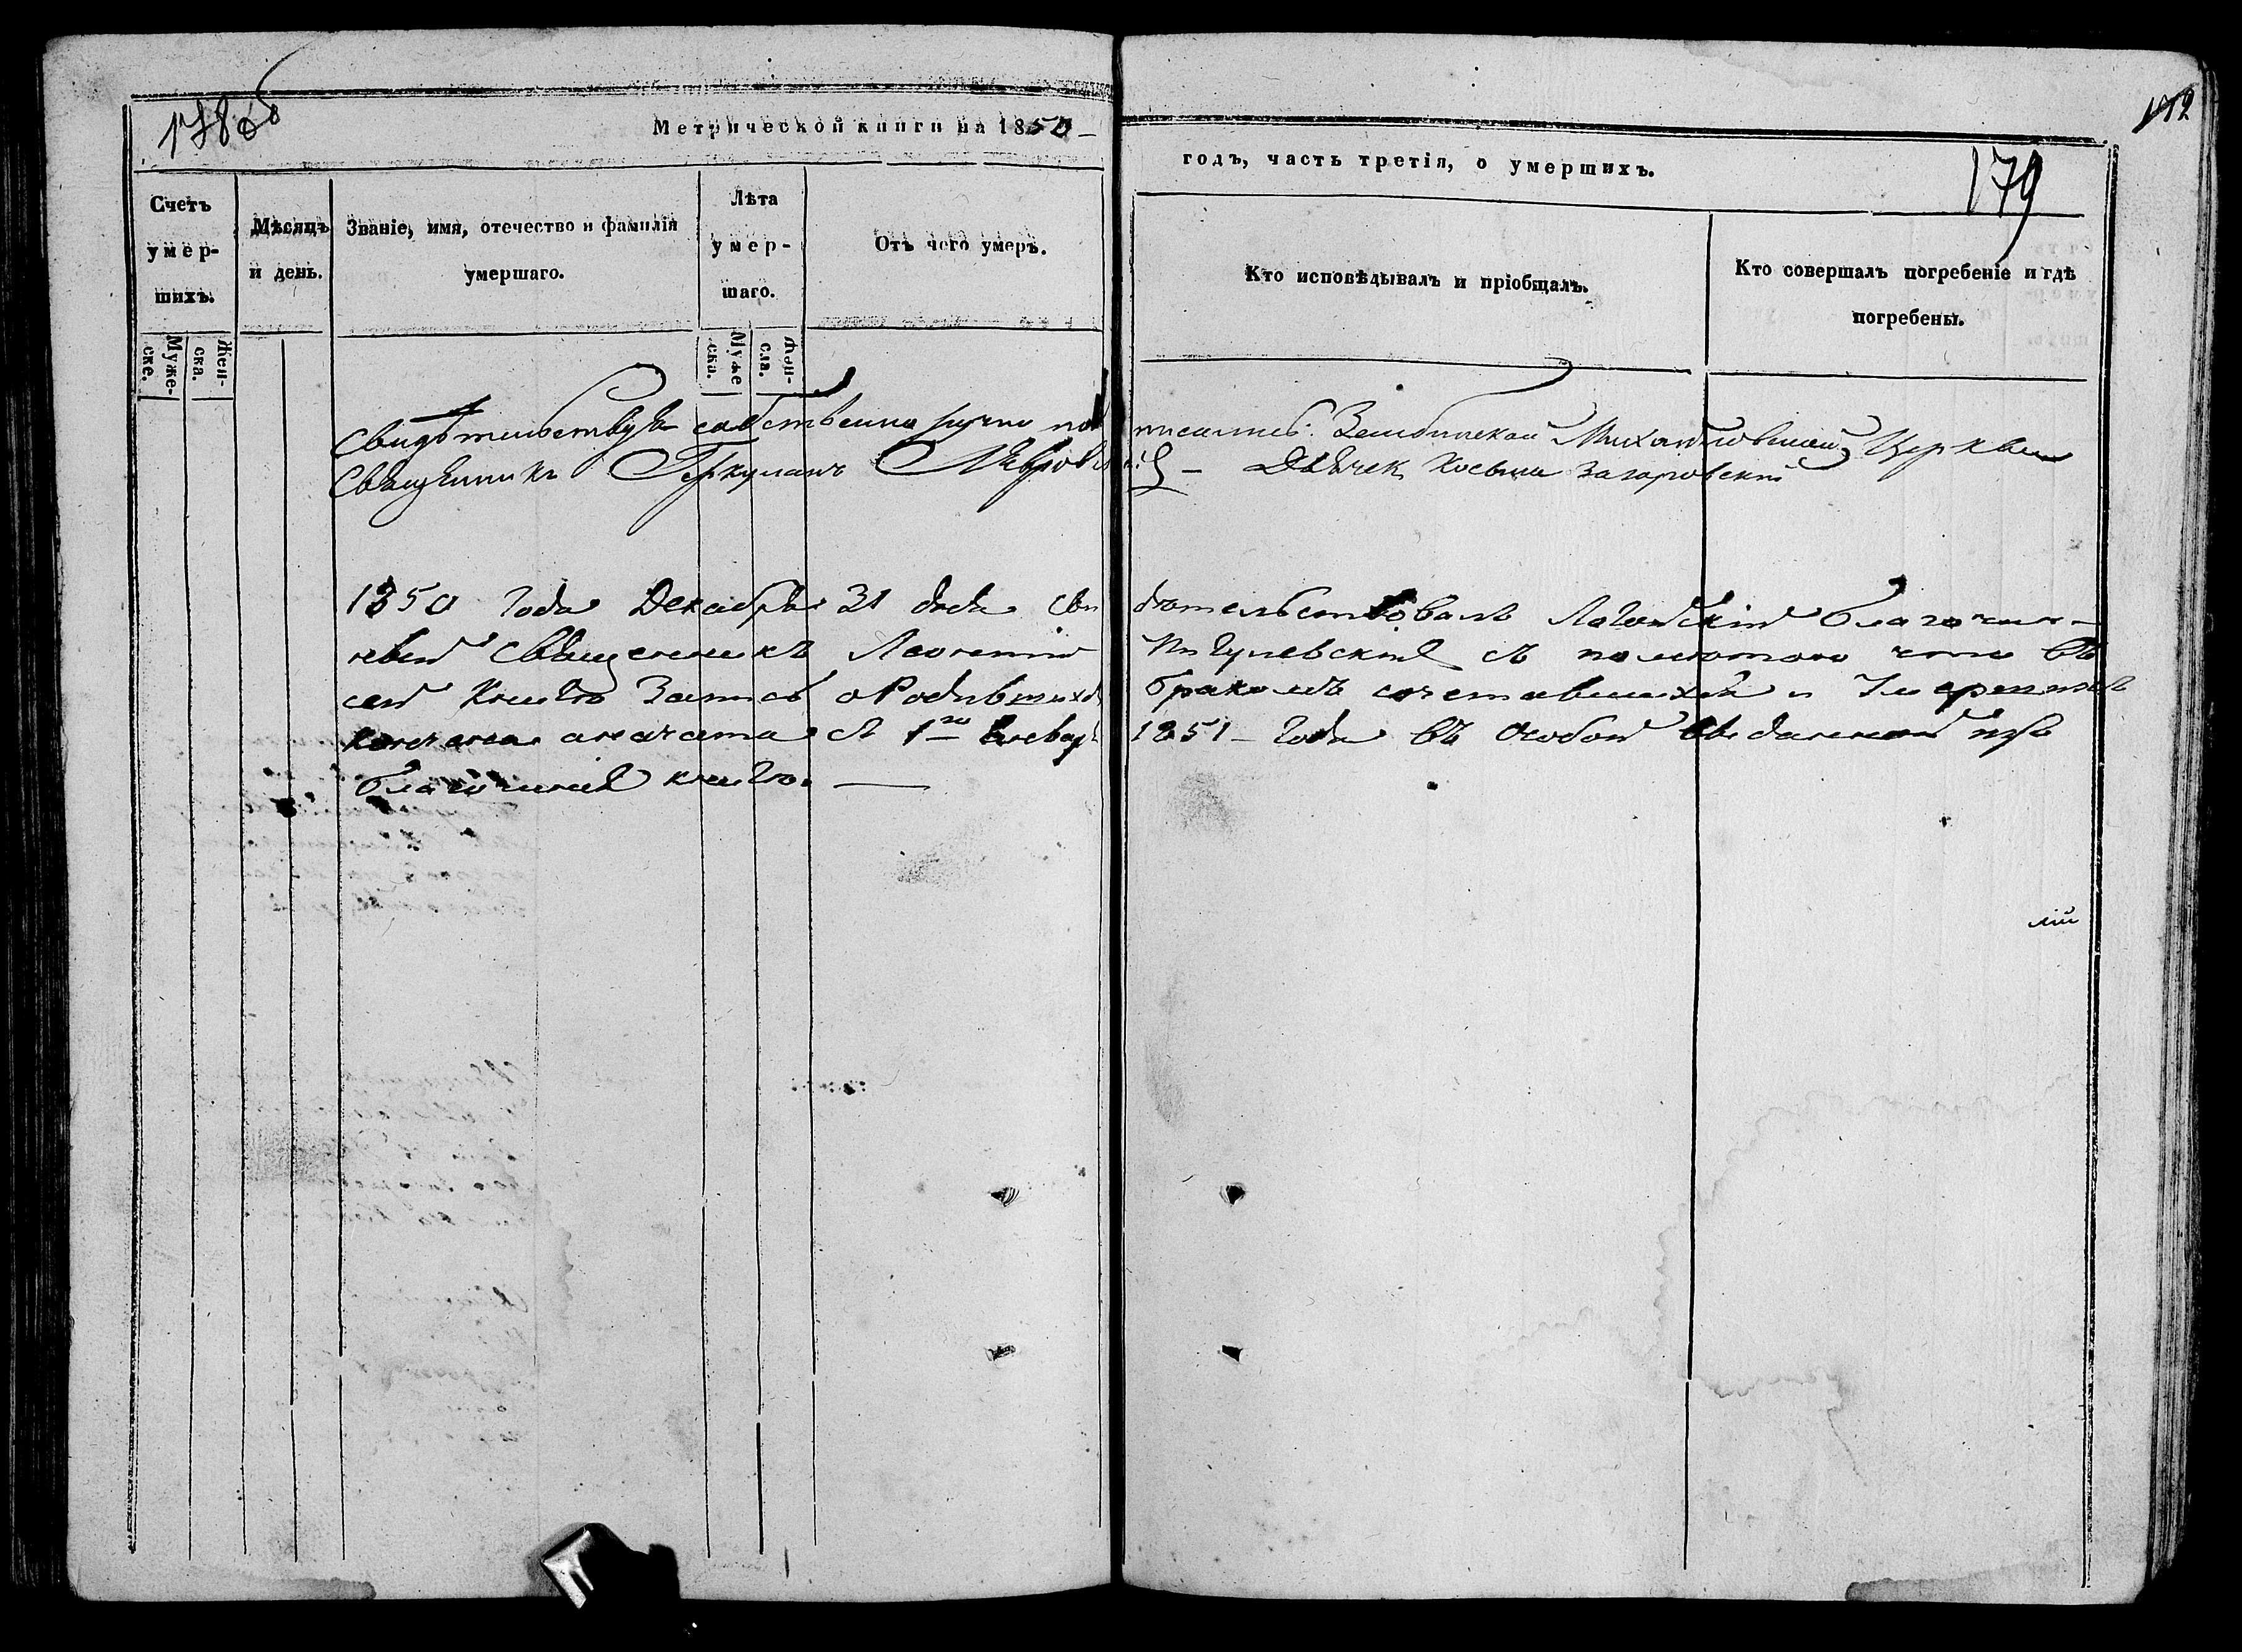 178 об
172
Метрической книги на 1850
годъ, часть третія, о умершихъ.
179
Счетъ умер-шихъ.
Муже-ске.
Жен-ска.
Мѣсяцъ и день.
Званіе, имя, отечество и фамилія умершаго.
Лѣта умер-шаго.
Муже ска.
Жен-ска.
Отъ чего умеръ.
Кто исповѣдывалъ и пріобщалъ.
Кто совершалъ погребеніе и гдѣ погребены.
Свидѣтельствуя собственно ручно под писались: Зембинской Михайловской Церкви
Священникъ Геркуланъ Дьячек Косьма Захаровский
1850 года Декабря 31 дня сви дѣтельствовалъ Логойскій благочин-
ный Священникъ Леонтій Пигулевскій съ
сей книги Запись о Родившихся бракомъ сочетавшихся и Умершихъ
кончена а начата съ 1го Генваря 1851 года въ особой
благочинія книгѣ.
лій